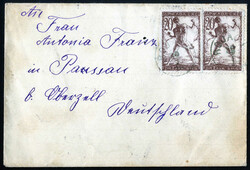 An
Frau
Antonia Franz
in Passau
b. Oberzell
Deutschland
20 20